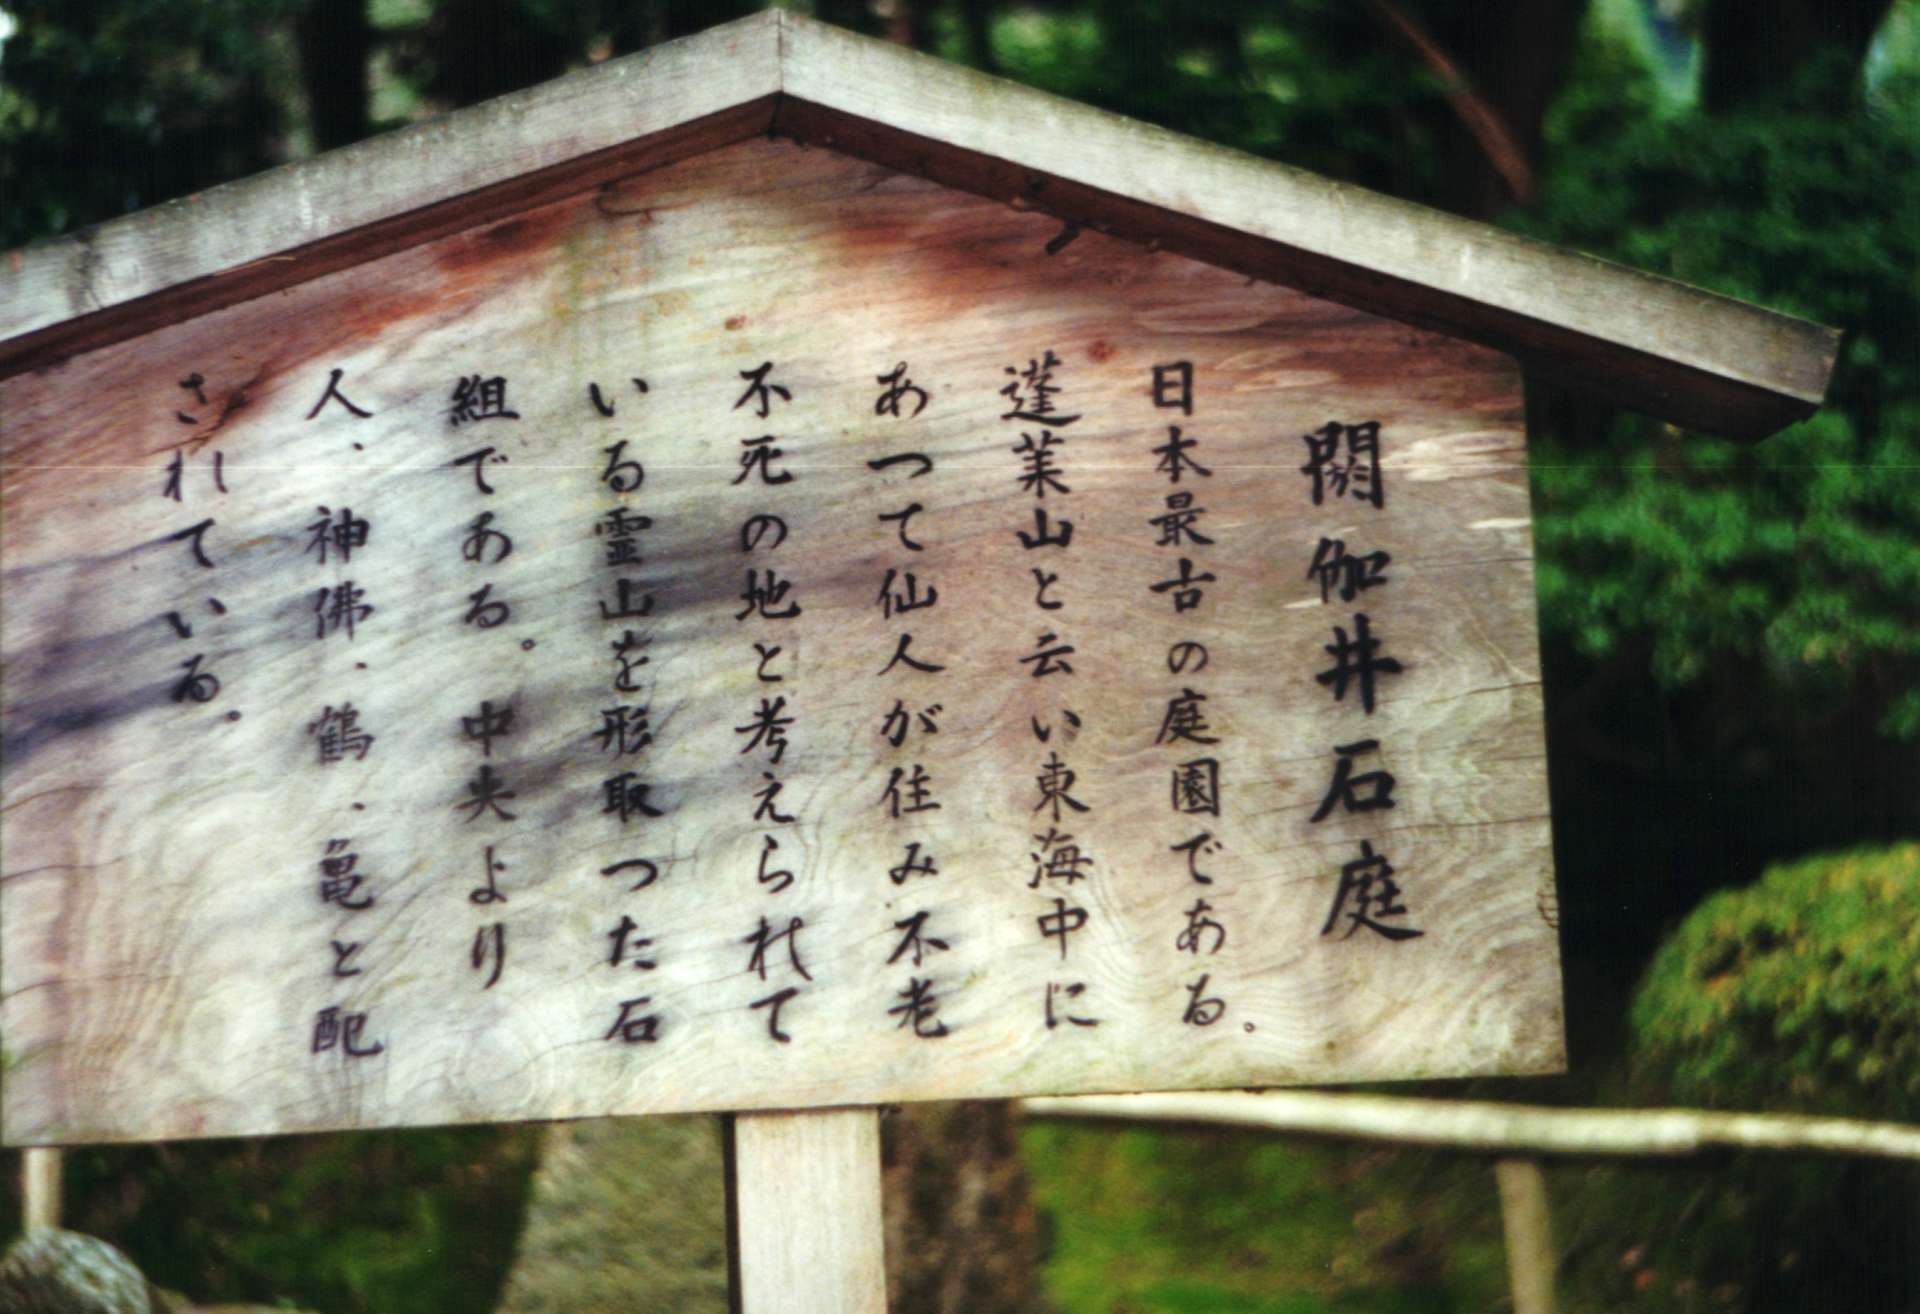 閼伽井石庭
日本最古の庭園である。
蓬萊山と云い東海中に
あつて仙人が住み不老
不死の地と考えられて
いる霊山を形取つた石
組である。中央より
人、神佛、鶴、亀と配
されている。